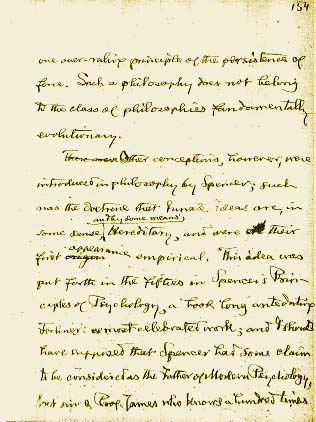 154
one over-ruling principle of the persistence of
force. Such a philosophy does not belong
to the class of philosophies fundamentally
evolutionary.
Other conceptions, however, were
introduced in philosophy by Spencer; such
was the doctrine that Innate ideas are, in
and by some means,
some sense, Hereditary, and were in their
appearance
first origin empirical. This idea was
put forth in the fifties in Spencer's Prin-
ciples of Psychology, a book long antedating
celebrated work; and I should
have supposed that Spencer had some claim
to be considered as the Father of Modern Psychology,
but Prof. James who knows a hundred times